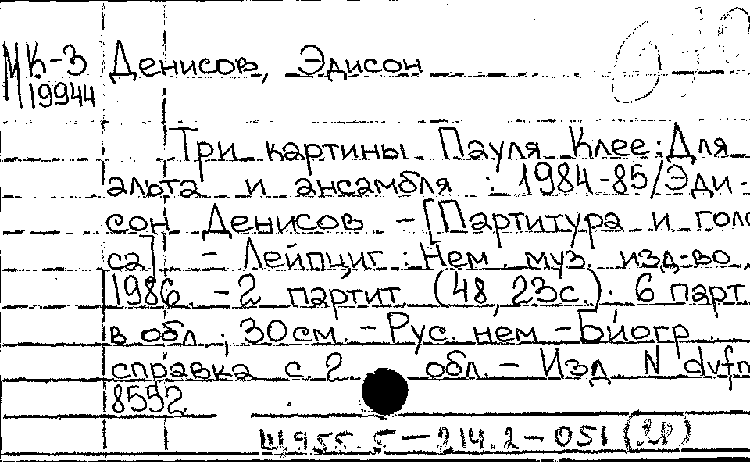 МК-3 Денисов, Эдисон
19944
Три картины Пауля Клее: Для
альта и ансамбля : 1984-85/Эди-
сон Денисов - [Партитура и голо
са] - Лейпциг : Нем. муз. изд-во,
1986. - 2 партит (48, 23с.). 6 парт.
в обл ; 30см. - Рус. нем - Биогр
справка с 2 обл. - Изд. N dvfm
8552
Щ955.5-214.2-051